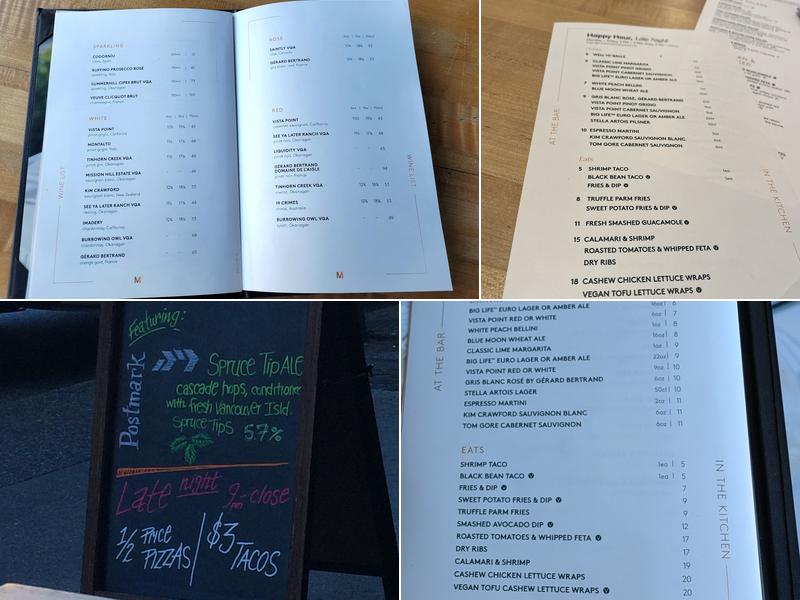 SPARKLING
CODORNÍU
RUFFINO PROSECCO ROSÉ
SUMMERHILL CIPES BRUT VQA
VEUVE CLICQUOT BRUT
champagne, France
WHITE
VISTA POINT
pinot grigio, California
MONTALTO
pinot grigio, Italy
TINHORN CREEK VQA
pinot gris, Okanagan
MISSION HILL ESTATE VQA
sauvignon blanc, Okanagan
KIM CRAWFORD
sauvignon blanc, New Zealand
SEE YA LATER RANCH VQA
riesling, Okanagan
IMAGERY
chardonnay, California
BURROWING OWL VQA
chardonnay, Okanagan
GÉRARD BERTRAND
orange gold, France
WINE LIST
ROSÉ
SAINTLY VQA
rosé, Canada
GÉRARD BERTRAND
gris blanc rosé, France
RED
VISTA POINT
cabernet sauvignon, California
SEE YA LATER RANCH VQA
pinot noir, Okanagan
LIQUIDITY VQA
pinot noir, Okanagan
GÉRARD BERTRAND
DOMAINE DE L'AIGLE
pinot noir, France
TINHORN CREEK VQA
merlot, Okanagan
19 CRIMES
shiraz, Australia
BURROWING OWL VQA
syrah, Okanagan
WINE LIST
M
Happy Hour, Late Night
6 WELL HI-BALLS
6 CLASSIC LIME MARGARITA
VISTA POINT PINOT GRIGIO
VISTA POINT CABERNET SAUVIGNON
BIG LIFE™ EURO LAGER OR AMBER ALE
7 WHITE PEACH BELLINI
BLUE MOON WHEAT ALE
9 GRIS BLANC ROSÉ, GÉRARD BERTRAND
VISTA POINT PINOT GRIGIO
VISTA POINT CABERNET SAUVIGNON
BIG LIFE™ EURO LAGER OR AMBER ALE
STELLA ARTOIS PILSNER
10 ESPRESSO MARTINI
KIM CRAWFORD SAUVIGNON BLANC
TOM GORE CABERNET SAUVIGNON
AT THE BAR
Eats
5 SHRIMP TACO
BLACK BEAN TACO
FRIES & DIP
8 TRUFFLE PARM FRIES
SWEET POTATO FRIES & DIP
11 FRESH SMASHED GUACAMOLE
15 CALAMARI & SHRIMP
ROASTED TOMATOES & WHIPPED FETA
DRY RIBS
18 CASHEW CHICKEN LETTUCE WRAPS
VEGAN TOFU LETTUCE WRAPS
IN THE KITCHEN
Featuring:
Postmark
Spruce Tip Ale
cascade hops, conditioned
with fresh Vancouver Isld.
Spruce Tips 5.7%
Late night 9pm-close
1/2 Price PIZZAS | $3 TACOS
BIG LIFE™ EURO LAGER OR AMBER ALE 16oz | 6
VISTA POINT RED OR WHITE 6oz | 7
WHITE PEACH BELLINI 1oz | 8
BLUE MOON WHEAT ALE 16oz | 8
CLASSIC LIME MARGARITA 1oz | 9
BIG LIFE™ EURO LAGER OR AMBER ALE 22oz | 9
VISTA POINT RED OR WHITE 9oz | 10
GRIS BLANC ROSÉ BY GÉRARD BERTRAND 6oz | 10
STELLA ARTOIS LAGER 50cl | 10
ESPRESSO MARTINI 2oz | 11
KIM CRAWFORD SAUVIGNON BLANC 6oz | 11
TOM GORE CABERNET SAUVIGNON 6oz | 11
AT THE BAR
EATS
SHRIMP TACO 1ea | 5
BLACK BEAN TACO 1ea | 5
FRIES & DIP 7
SWEET POTATO FRIES & DIP 9
TRUFFLE PARM FRIES 9
SMASHED AVOCADO DIP 12
ROASTED TOMATOES & WHIPPED FETA 17
DRY RIBS 17
CALAMARI & SHRIMP 19
CASHEW CHICKEN LETTUCE WRAPS 20
VEGAN TOFU CASHEW LETTUCE WRAPS 20
IN THE KITCHEN